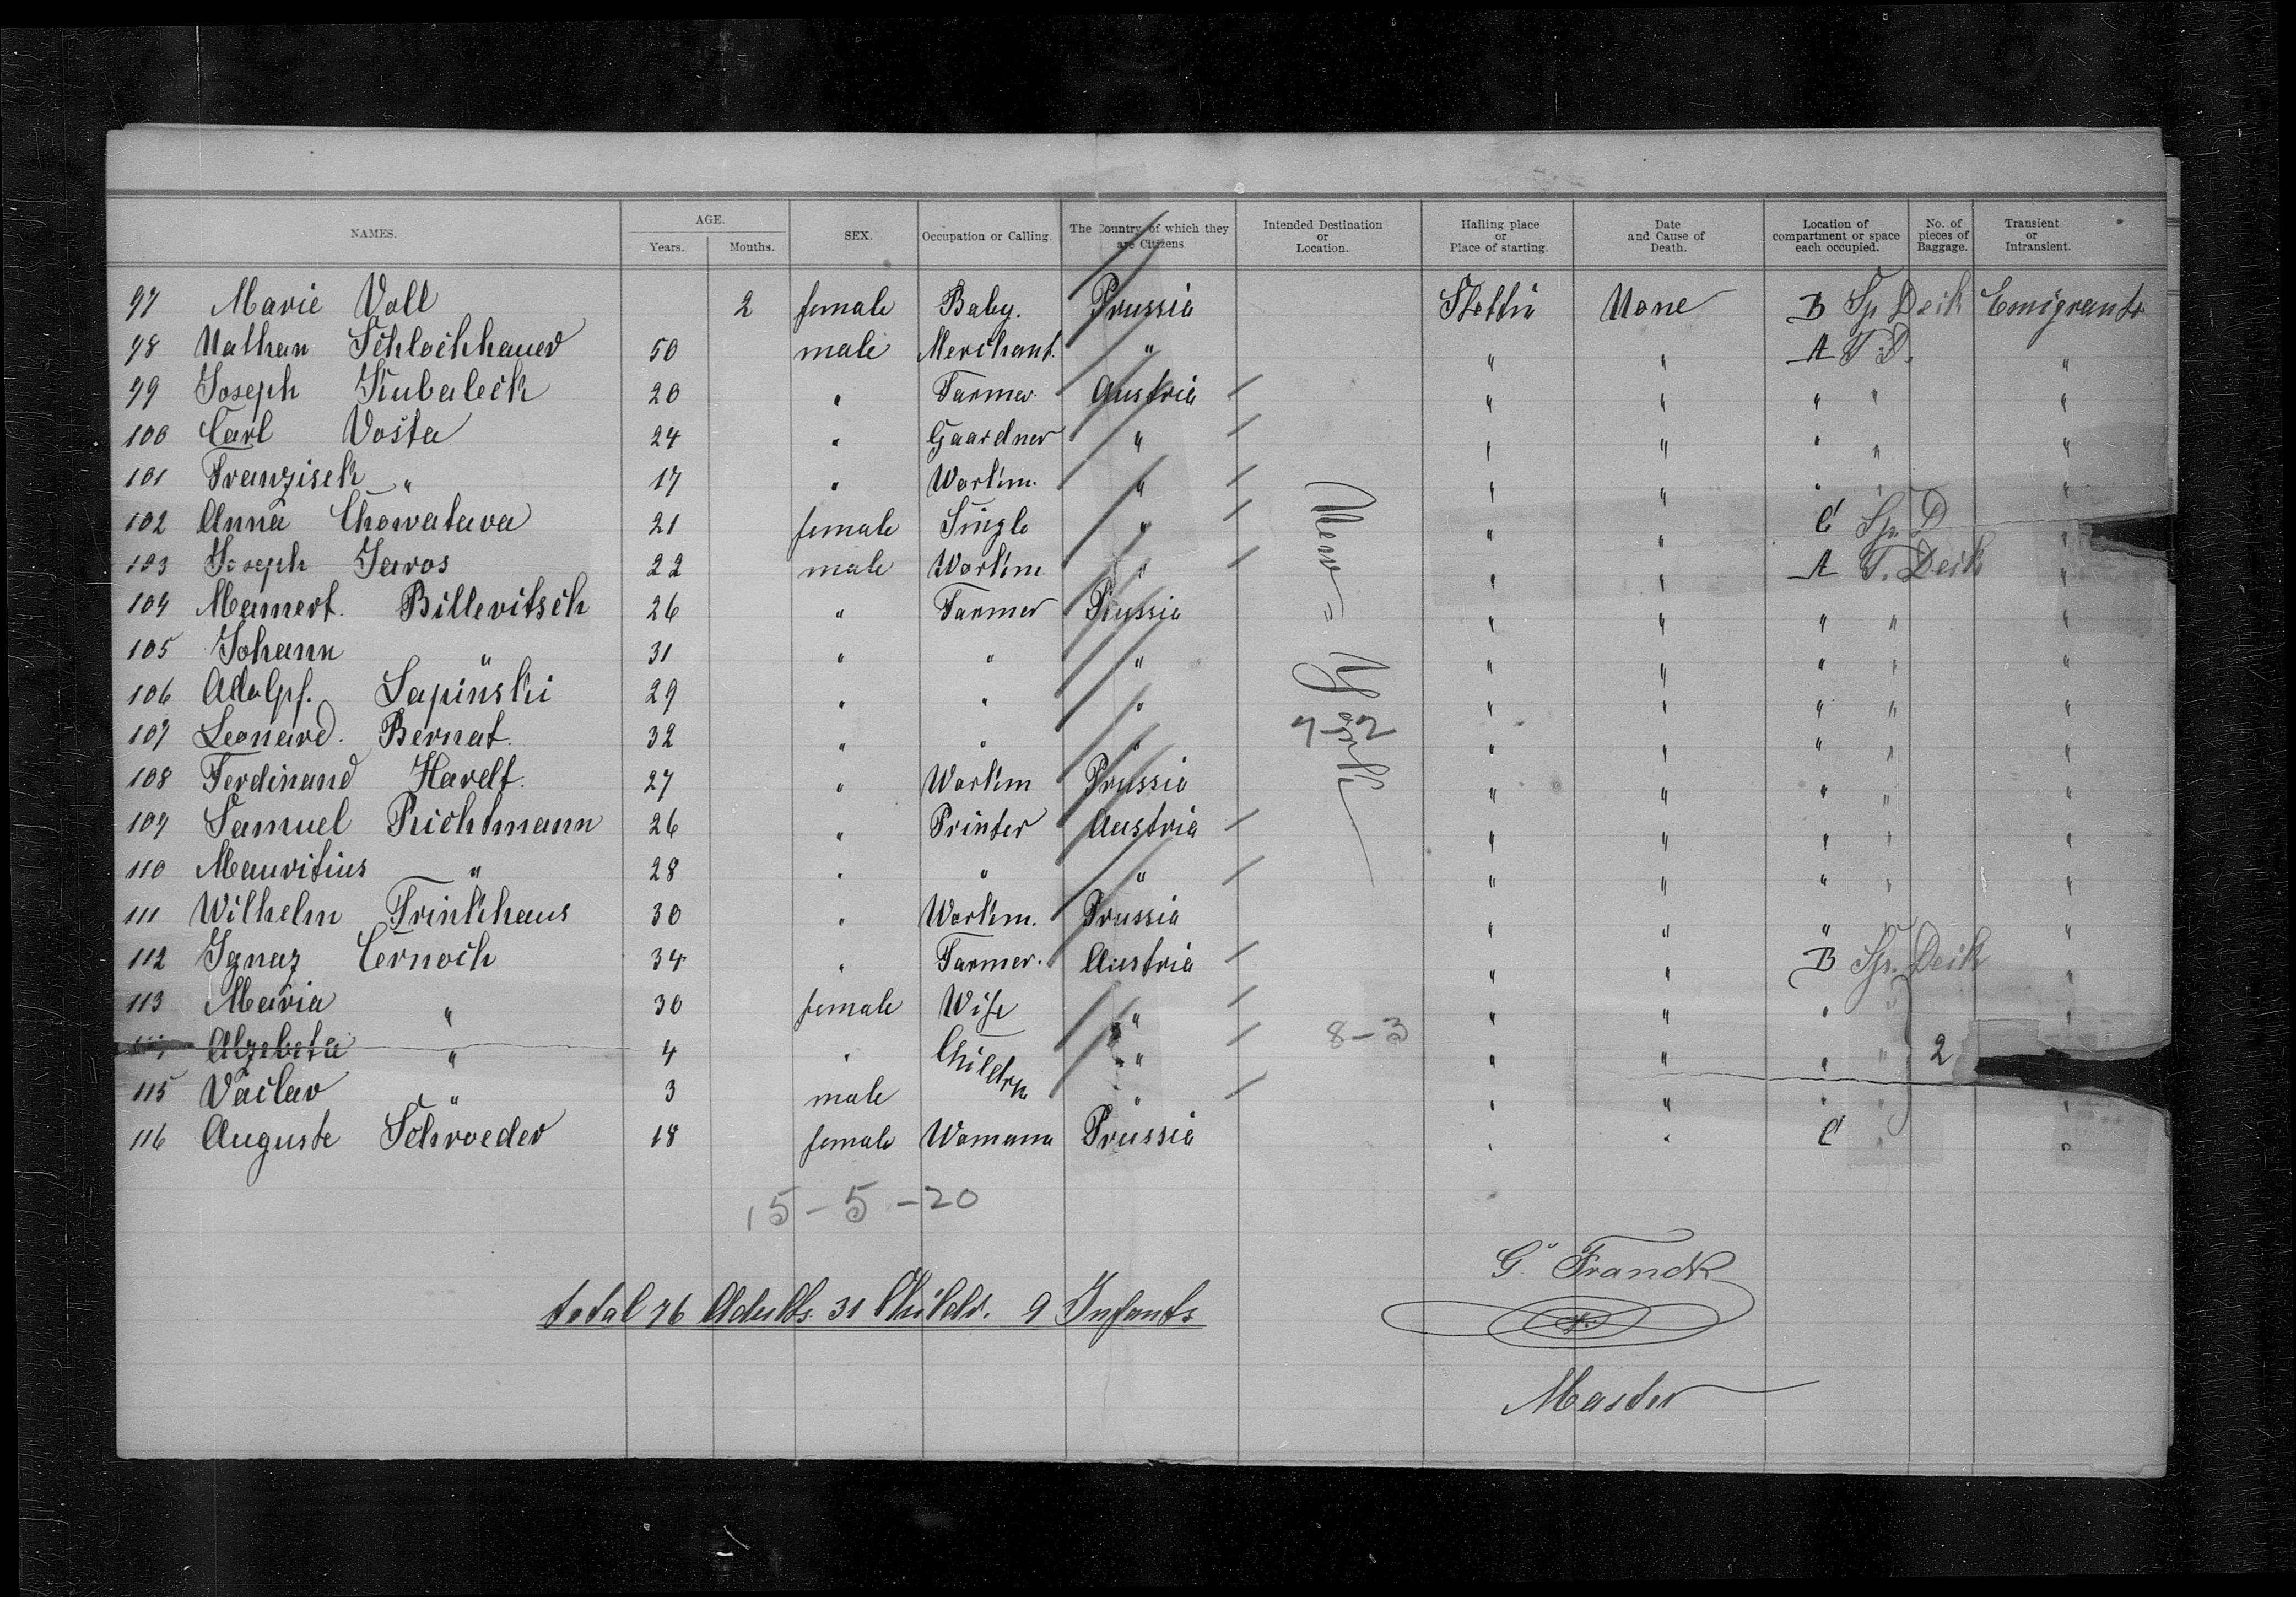 NAMES. AGE. SEX. Occupation or Calling. The Country of which they are Citizens Intended Destination or Location. Hailing place or Place of starting. Date and Cause of Death. Location of compartment or space each occupied. No. of pieces of Baggage. Transient or Intransient.
Years. Months.
97 Marie Voll 2 female Baby. Prussia Stettin None B Sp Deck Emigrants
98 Nathan Schlochhauer 50 male Merchant. " " " A T.D. "
99 Joseph Kubaleck 20 " Farmer Austria " " " " "
100 Carl Vosta 24 " Gaardner " " " " " "
101 Franzisek " 17 " Workm. " " " " " "
102 Anna Chowatava 21 female Single " " " C Sp. D "
103 Joseph Jaros 22 male Workm " " " A T. Deck "
104 Mamert. Billevitsch 26 " Farmer Russia " " " " "
105 Johann " 31 " " " " " " " "
106 Adolpf. Sapinski 29 " " " " " " " "
107 Leonard. Bernat. 32 " " " " " " " "
108 Ferdinand Hardt. 27 " Workm Prussia " " " " "
109 Samuel Richtmann 26 " Printer Austria " " " " "
110 Mauritius " 28 " " " " " " " "
111 Wilhelm Trinkhaus 30 " Workm. Prussia " " " "
112 Ignaz Cernoch 34 " Farmer. Austria " " B Sp. Deck "
113 Maria " 30 female Wife " " " " " "
Alzebeta " 4 " Childrn " " " " " 2
115 Vaclav " 3 male " " " " " "
116 Auguste Schroeder 18 female Womann Prussia " " C " "
New = York
7-22
8-3
15-5-20
total 76 Adults. 31 Childr. 9 Infants
G. Franck
Master